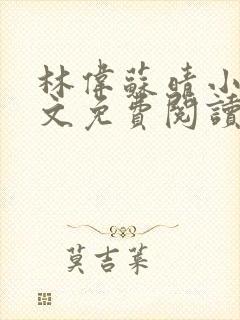 林偉蘇晴小
文免費閱讀
莫吉葉